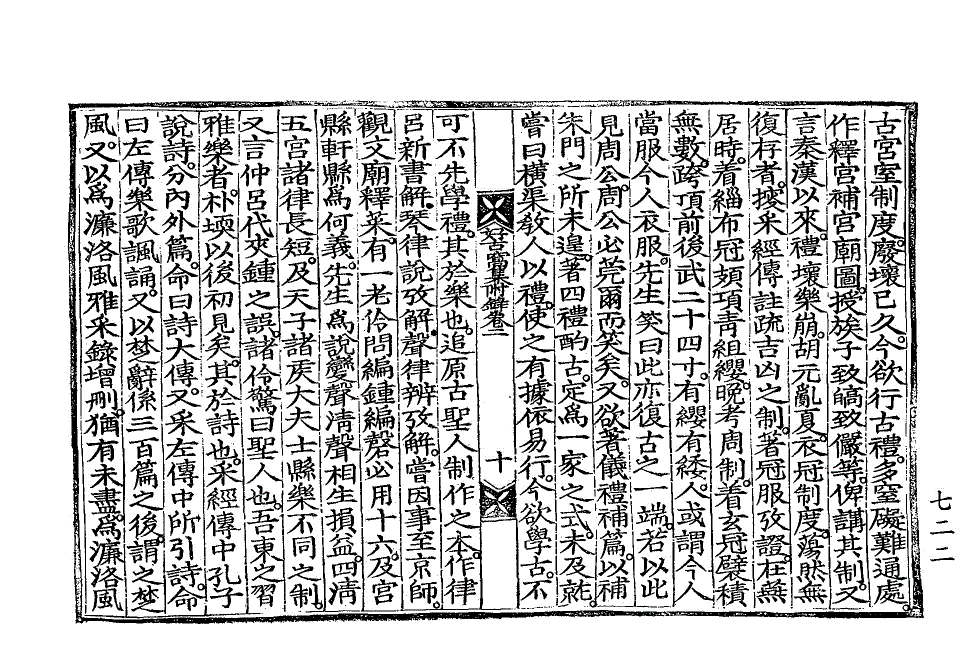 古宮室制度廢壞已久今欲行古禮多窒礙難通處
作釋宮補宮廟圖授族子致皜致儼等俾講其制又
言秦漢以來禮壞樂崩胡元亂夏衣冠制度蕩然無
復存者掇采經傳註疏吉凶之制著冠服攷證在燕
居時着緇布冠頍項靑組纓晩考周制着玄冠襞積
無數跨頂前後武二十四寸有纓有緌人或謂今人
當服今人衣服先生笑曰此亦復古之一端若以此
見周公周公必莞爾而笑矣又欲著儀禮補篇以補
朱門之所未遑著四禮酌古定爲一家之式未及就
嘗曰橫渠敎人以禮使之有據依易行今欲學古不
卷二 十
可不先學禮其於樂也追原古聖人制作之本作律
呂新書解琴律說攷解聲律辨攷解嘗因事至京師
觀文廟釋菜有一老伶問編鍾編磬必用十六及宮
縣軒縣爲何義先生爲說變聲淸聲相生損益四淸
五宮諸律長短及天子諸侯大夫士縣樂不同之制
又言仲呂代夾鍾之誤諸伶驚曰聖人也吾東之習
雅樂者朴堧以後初見矣其於詩也采經傳中孔子
說詩分內外篇命曰詩大傳又采左傳中所引詩命
曰左傳樂歌諷誦又以楚辭係三百篇之後謂之楚
風又以爲濂洛風雅采錄增刪猶有未盡爲濂洛風
七二二